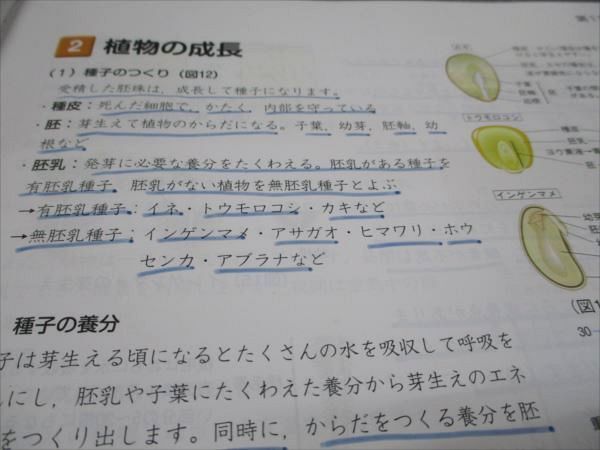 2 植物の成長
(1) 種子のつくり (図12)
受精した胚珠は,成長して種子になります。
・種皮:死んだ細胞で,かたく,内部を守っている
・胚:芽生えて植物のからだになる。子葉,幼芽,胚軸,幼
根など
・胚乳:発芽に必要な養分をたくわえる。胚乳がある種子を
有胚乳種子,胚乳がない植物を無胚乳種子とよぶ
→有胚乳種子:イネ・トウモロコシ・カキなど
→無胚乳種子:インゲンマメ・アサガオ・ヒマワリ・ホウ
センカ・アブラナなど
種子の養分
子は芽生える頃になるとたくさんの水を吸収して呼吸を
にし,胚乳や子葉にたくわえた養分から芽生えのエネ
をつくり出します。同時に,からだをつくる養分を胚
第1
種皮
子葉
胚軸
幼根
トウモロコシ
種皮
胚乳
ヨウ素液
胚
インゲンマメ
幼芽
胚
幼
子
(図1
30